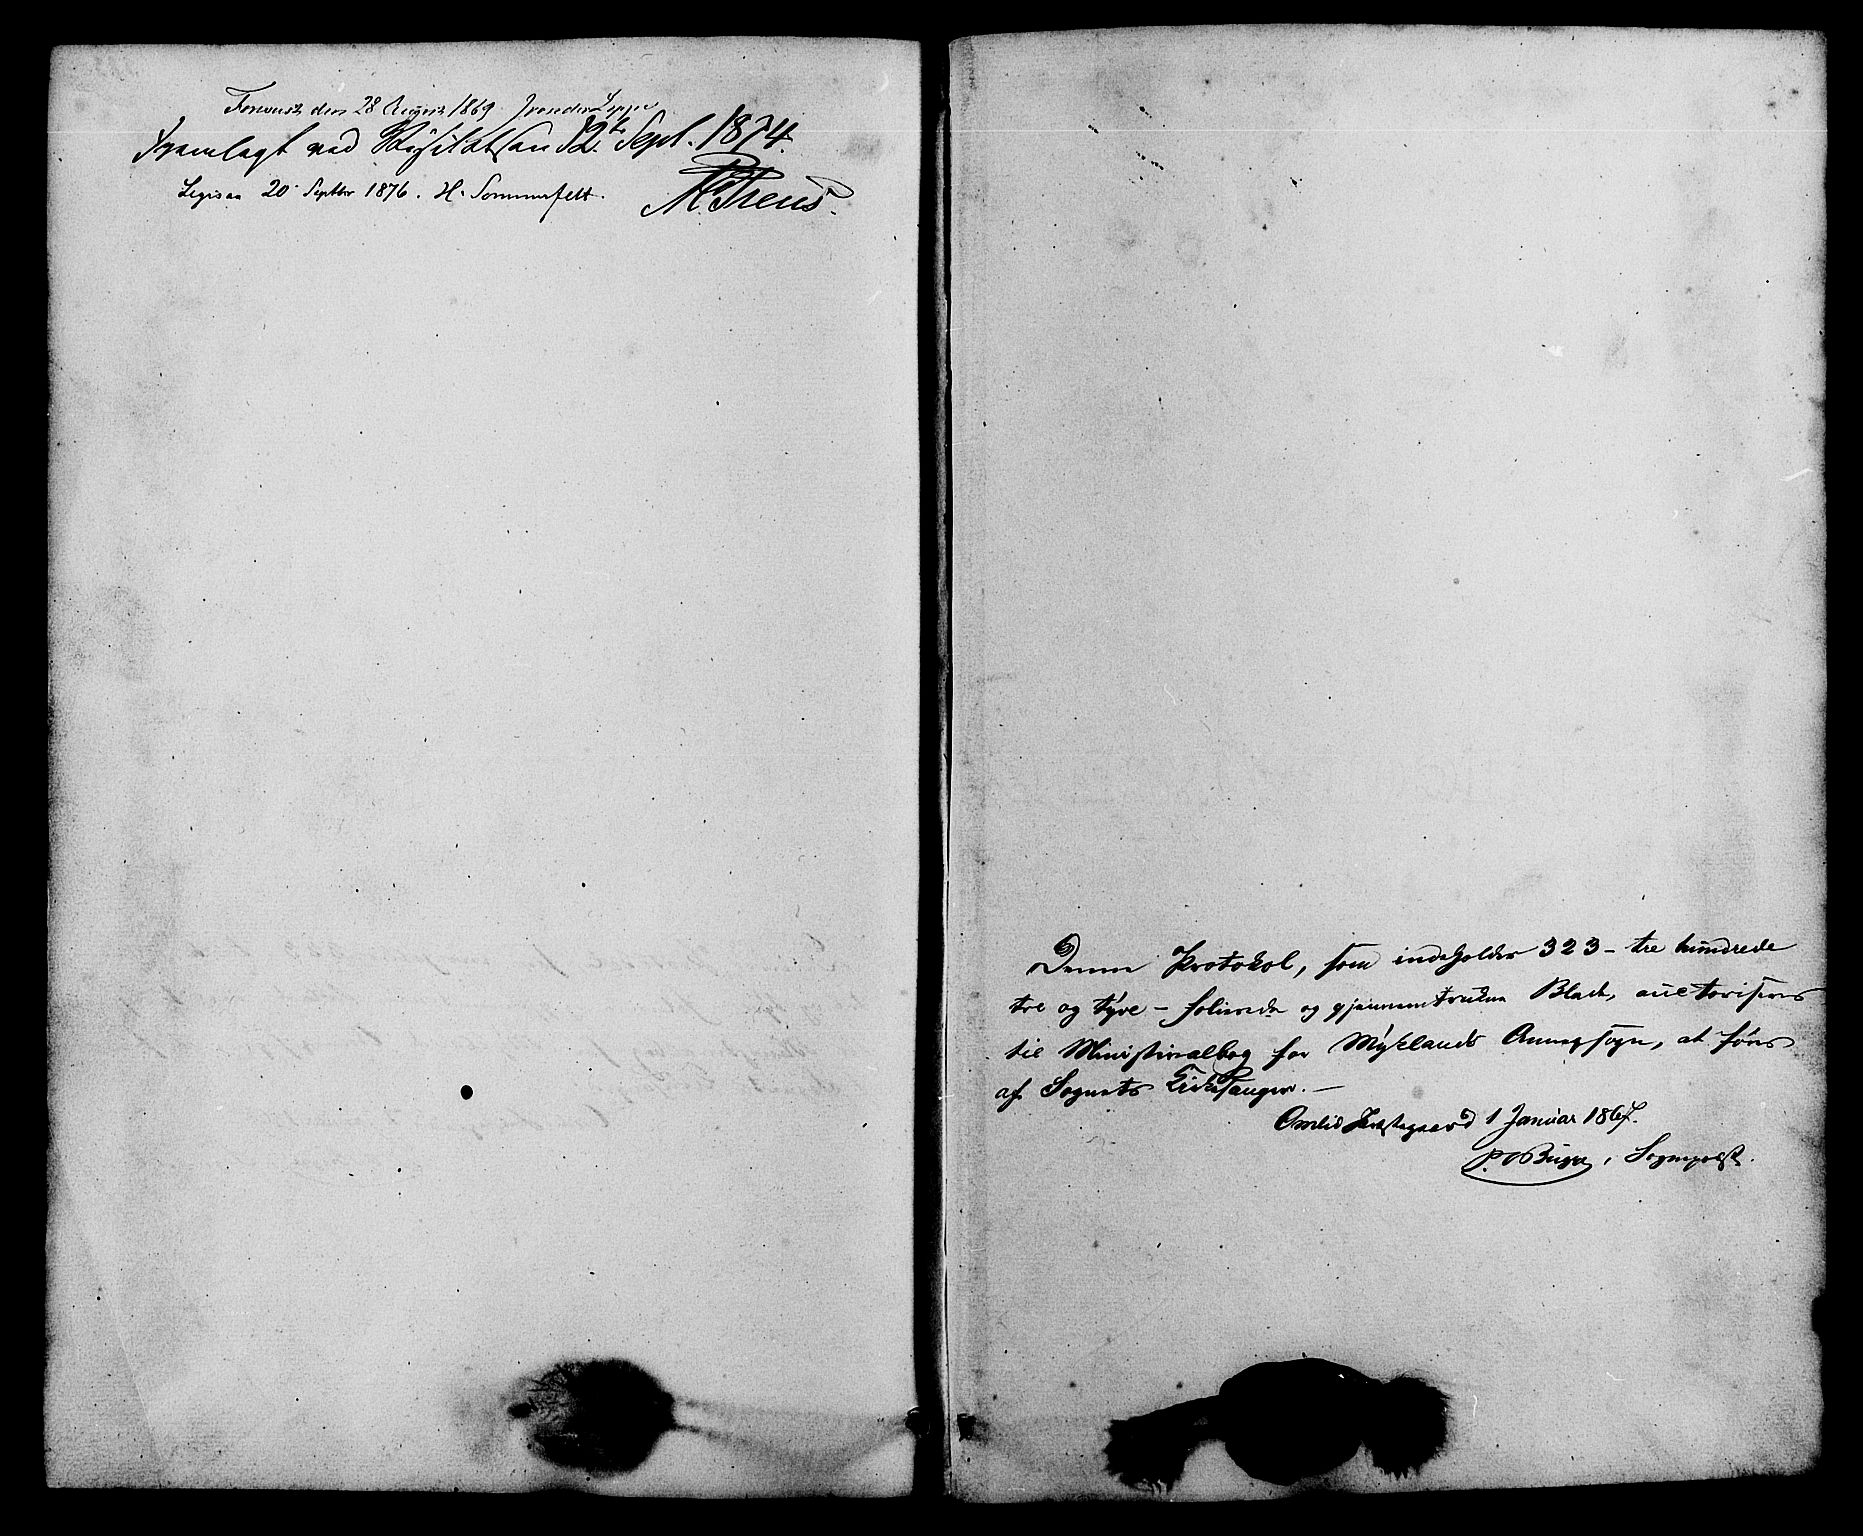 Forevist den 28 August 1869
Fremlagt ved Visitatsen 12te Sept. 1874.
20 Septbr 1876. H. Sommerfelt.
Denne Protokol, som indeholder 323 – tre hundrede
tre og tyve – folierede og gjennemtrukne Blade, auctoriseres
til Ministerialbog for Myklands Annexsogn, at føres
af Sognets Kirkesanger. –
Omlid Præstegaard 1 Januar 1867.
Sognepræst.